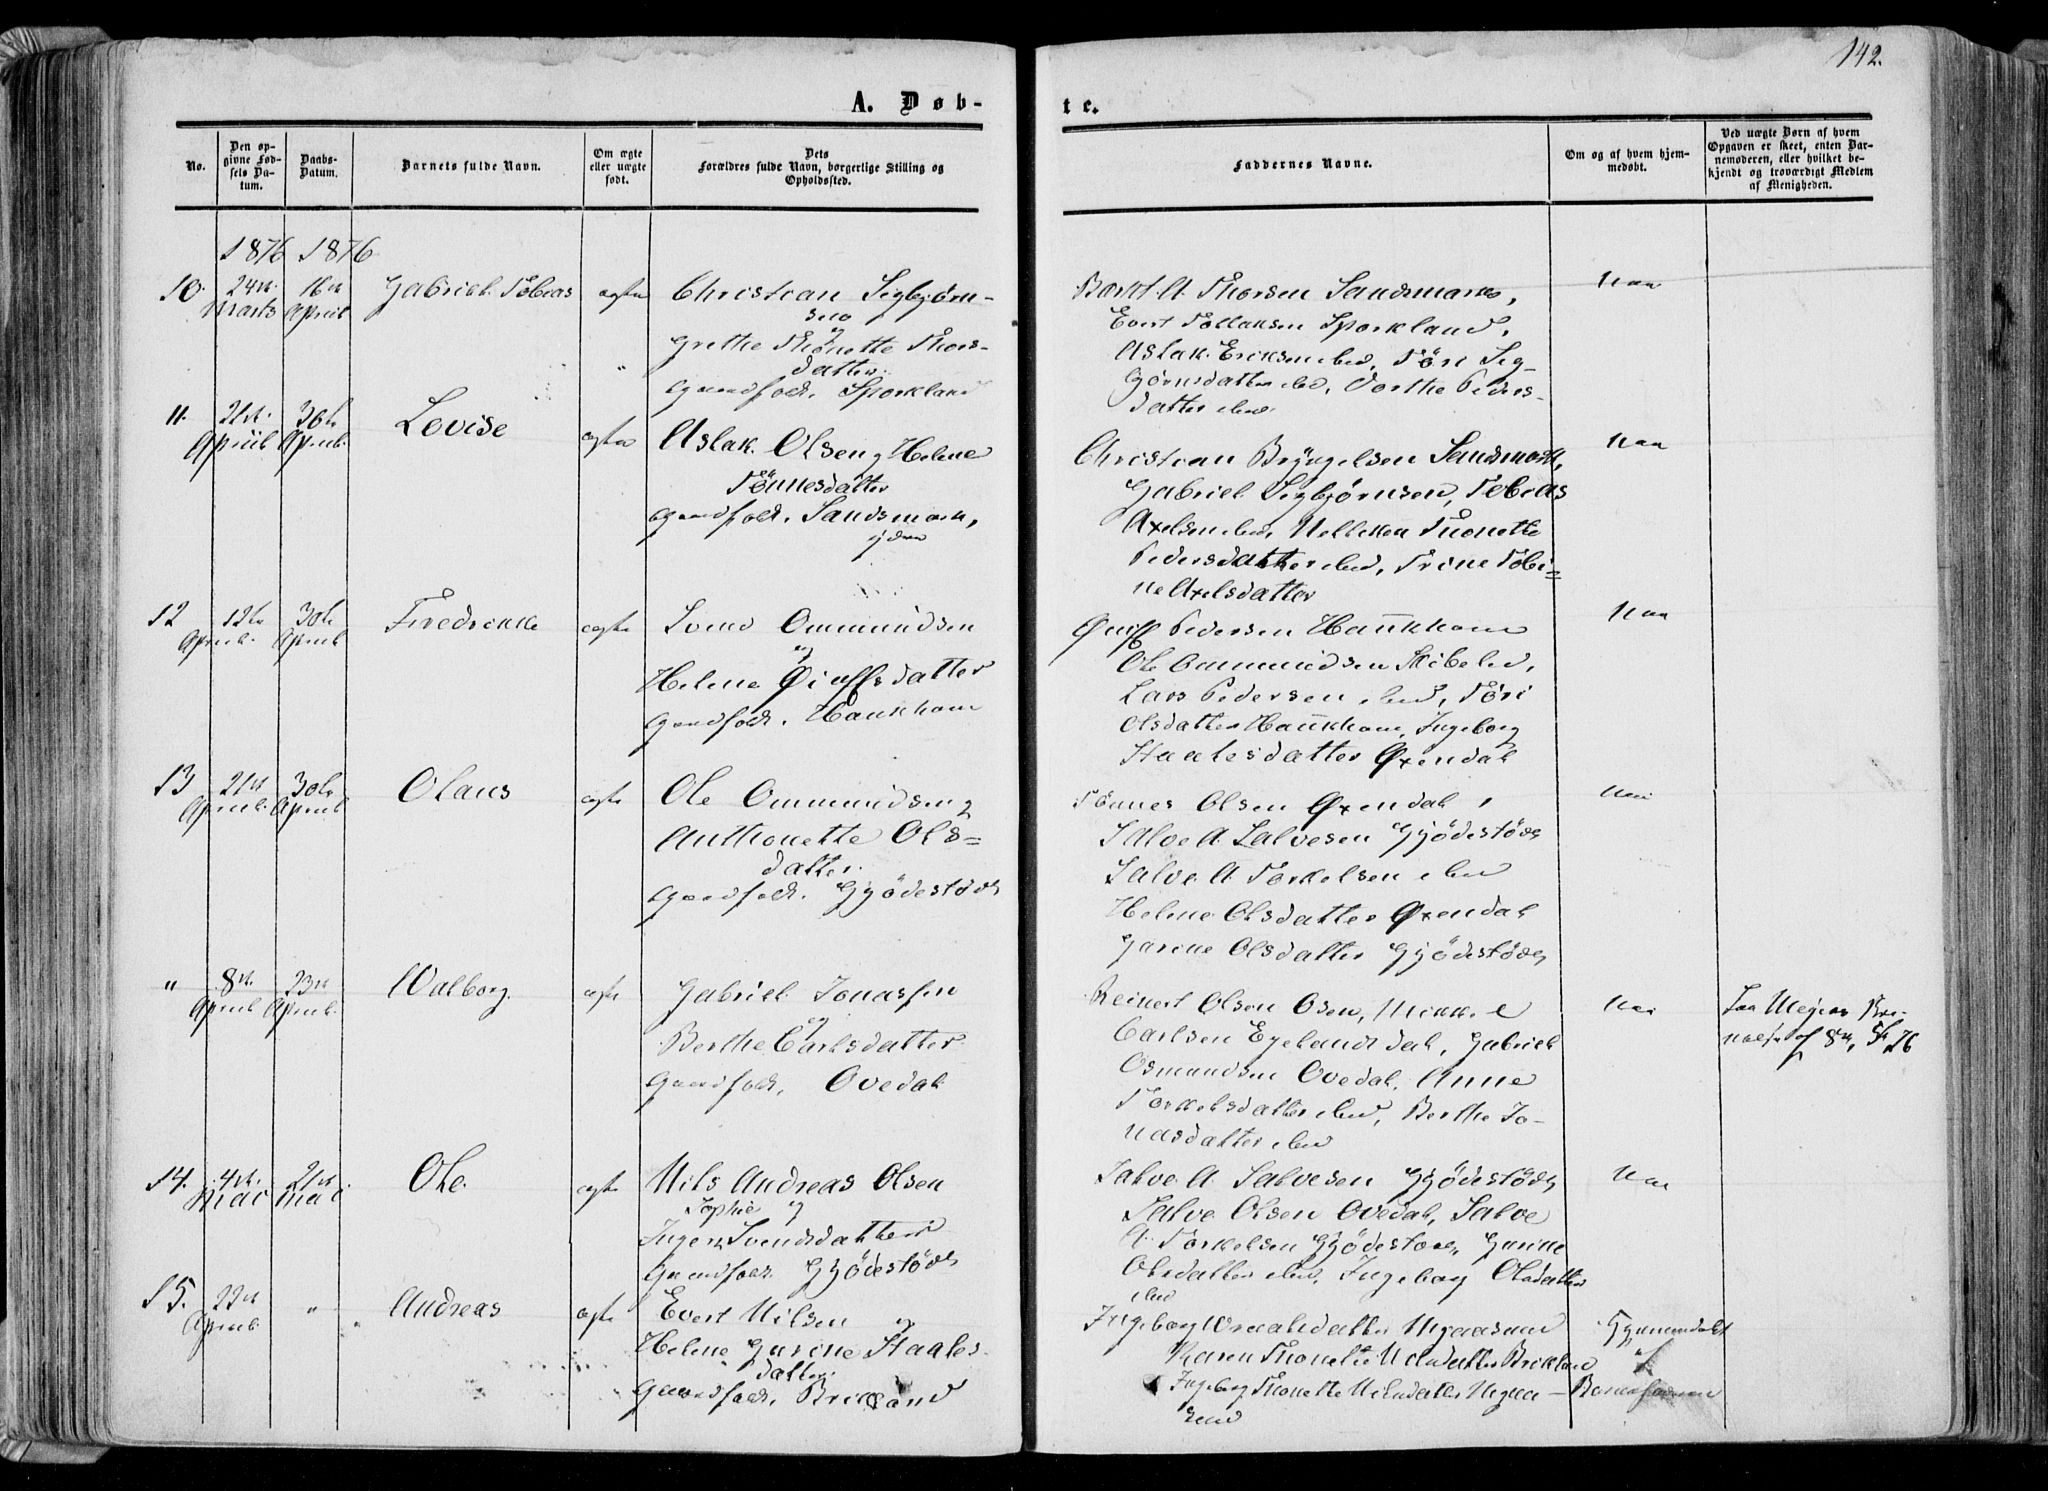 142.
A. Døb-
te.
No.
Den op-
givne Fød-
sels Da-
tum.
Daabs-
Datum.
Barnets fulde Navn.
Om ægte
eller uægte
født.
Dets
Forældres fulde Navn, borgerlige Stilling og
Opholdssted.
Faddernes Navne.
Om og af hvem hjem-
medøbt.
Ved uægte Børn af hvem
Opgaven er skeet, enten Bar-
nemoderen, eller hvilket be-
kjendt og troværdigt Medlem
af Menigheden.
1876 1876
10. 24de Marts 16de April Gabriel Tobias ægte
Christian Sigbjørn-
sen
og
Grethe Thonette Thors-
datter.
Gaardfolk. Sporkland
A. Thorsen Sandsmark,
Evert Tollaksen Sporkland,
Aslak Eriksen ibid, Töri Sig-
bjørnsdatter ibid, Dorthe Peders-
datter ibid.
Nei
11. 21de April 30te April Lovise ægte
Aslak Olsen og Helene
Tönnesdatter
Gaardfolk. Sandsmark,
ydre
Christian Bryngelsen Sandsmark,
Gabriel Sigbjørnsen, Tobias
Axelsen ibid, Thonette
Pedersdatter ibid, Trine Tobi=
ne Axelsdatter
Nei
12 12te April 30te April Fredrikke ægte
Svend Ommundsen
og
Helene Øiuffsdatter
Gaardfolk. Haukhom
Øiuff Pedersen Haukhom
Ole Ommundsen Skibeled,
Lars Pedersen ibid, Töri
Olsdatter Haukhom, Ingeborg
Staalesdatter Øxendal
Nei
13 21de April 30te April Olaus ægte
Ole Ommundsen og
Anthonette Ols=
datter.
Gaardfolk. Gyödestöl
Tönnes Olsen Øxendal,
Salve A. Salvesen Gyödestöl
Salve A. Torkelsen ibid
Helene Olsdatter Øxendal
Garine Olsdatter Gyödestöl
Nei
" 8de April 23de April Walborg ægte
Gabriel Jonassen
og
Berthe Carlsdatter
Gaardfolk. Ovedal
Reinert Olsen Osen, Mikkel
Carlsen Egelandsdal, Gabriel
Osmundsen Ovedal, Anne
Torkelsdatter ibid, Berthe Jo-
nasdatter ibid
Nei
14. 4de Mai 21de Mai Ole ægte
Nils Andreas Olsen
Sophie og
Inger Svendsdatter
Gaardfolk Gyödestöl
Salve A. Salvesen Gyödestöl
Salve Olsen Ovedal, Salve
A. Torkelsen Gyödestöl, Garine
Olsdatter ibid, Ingeborg Olsdatter
ibid
Nei
15. 22de April " Andreas ægte
Evert Nilsen og
Helene Gurine Staales-
datter
Gaardfolk. Brikland
Karen Thonette Brikland
Ingeborg Thonette